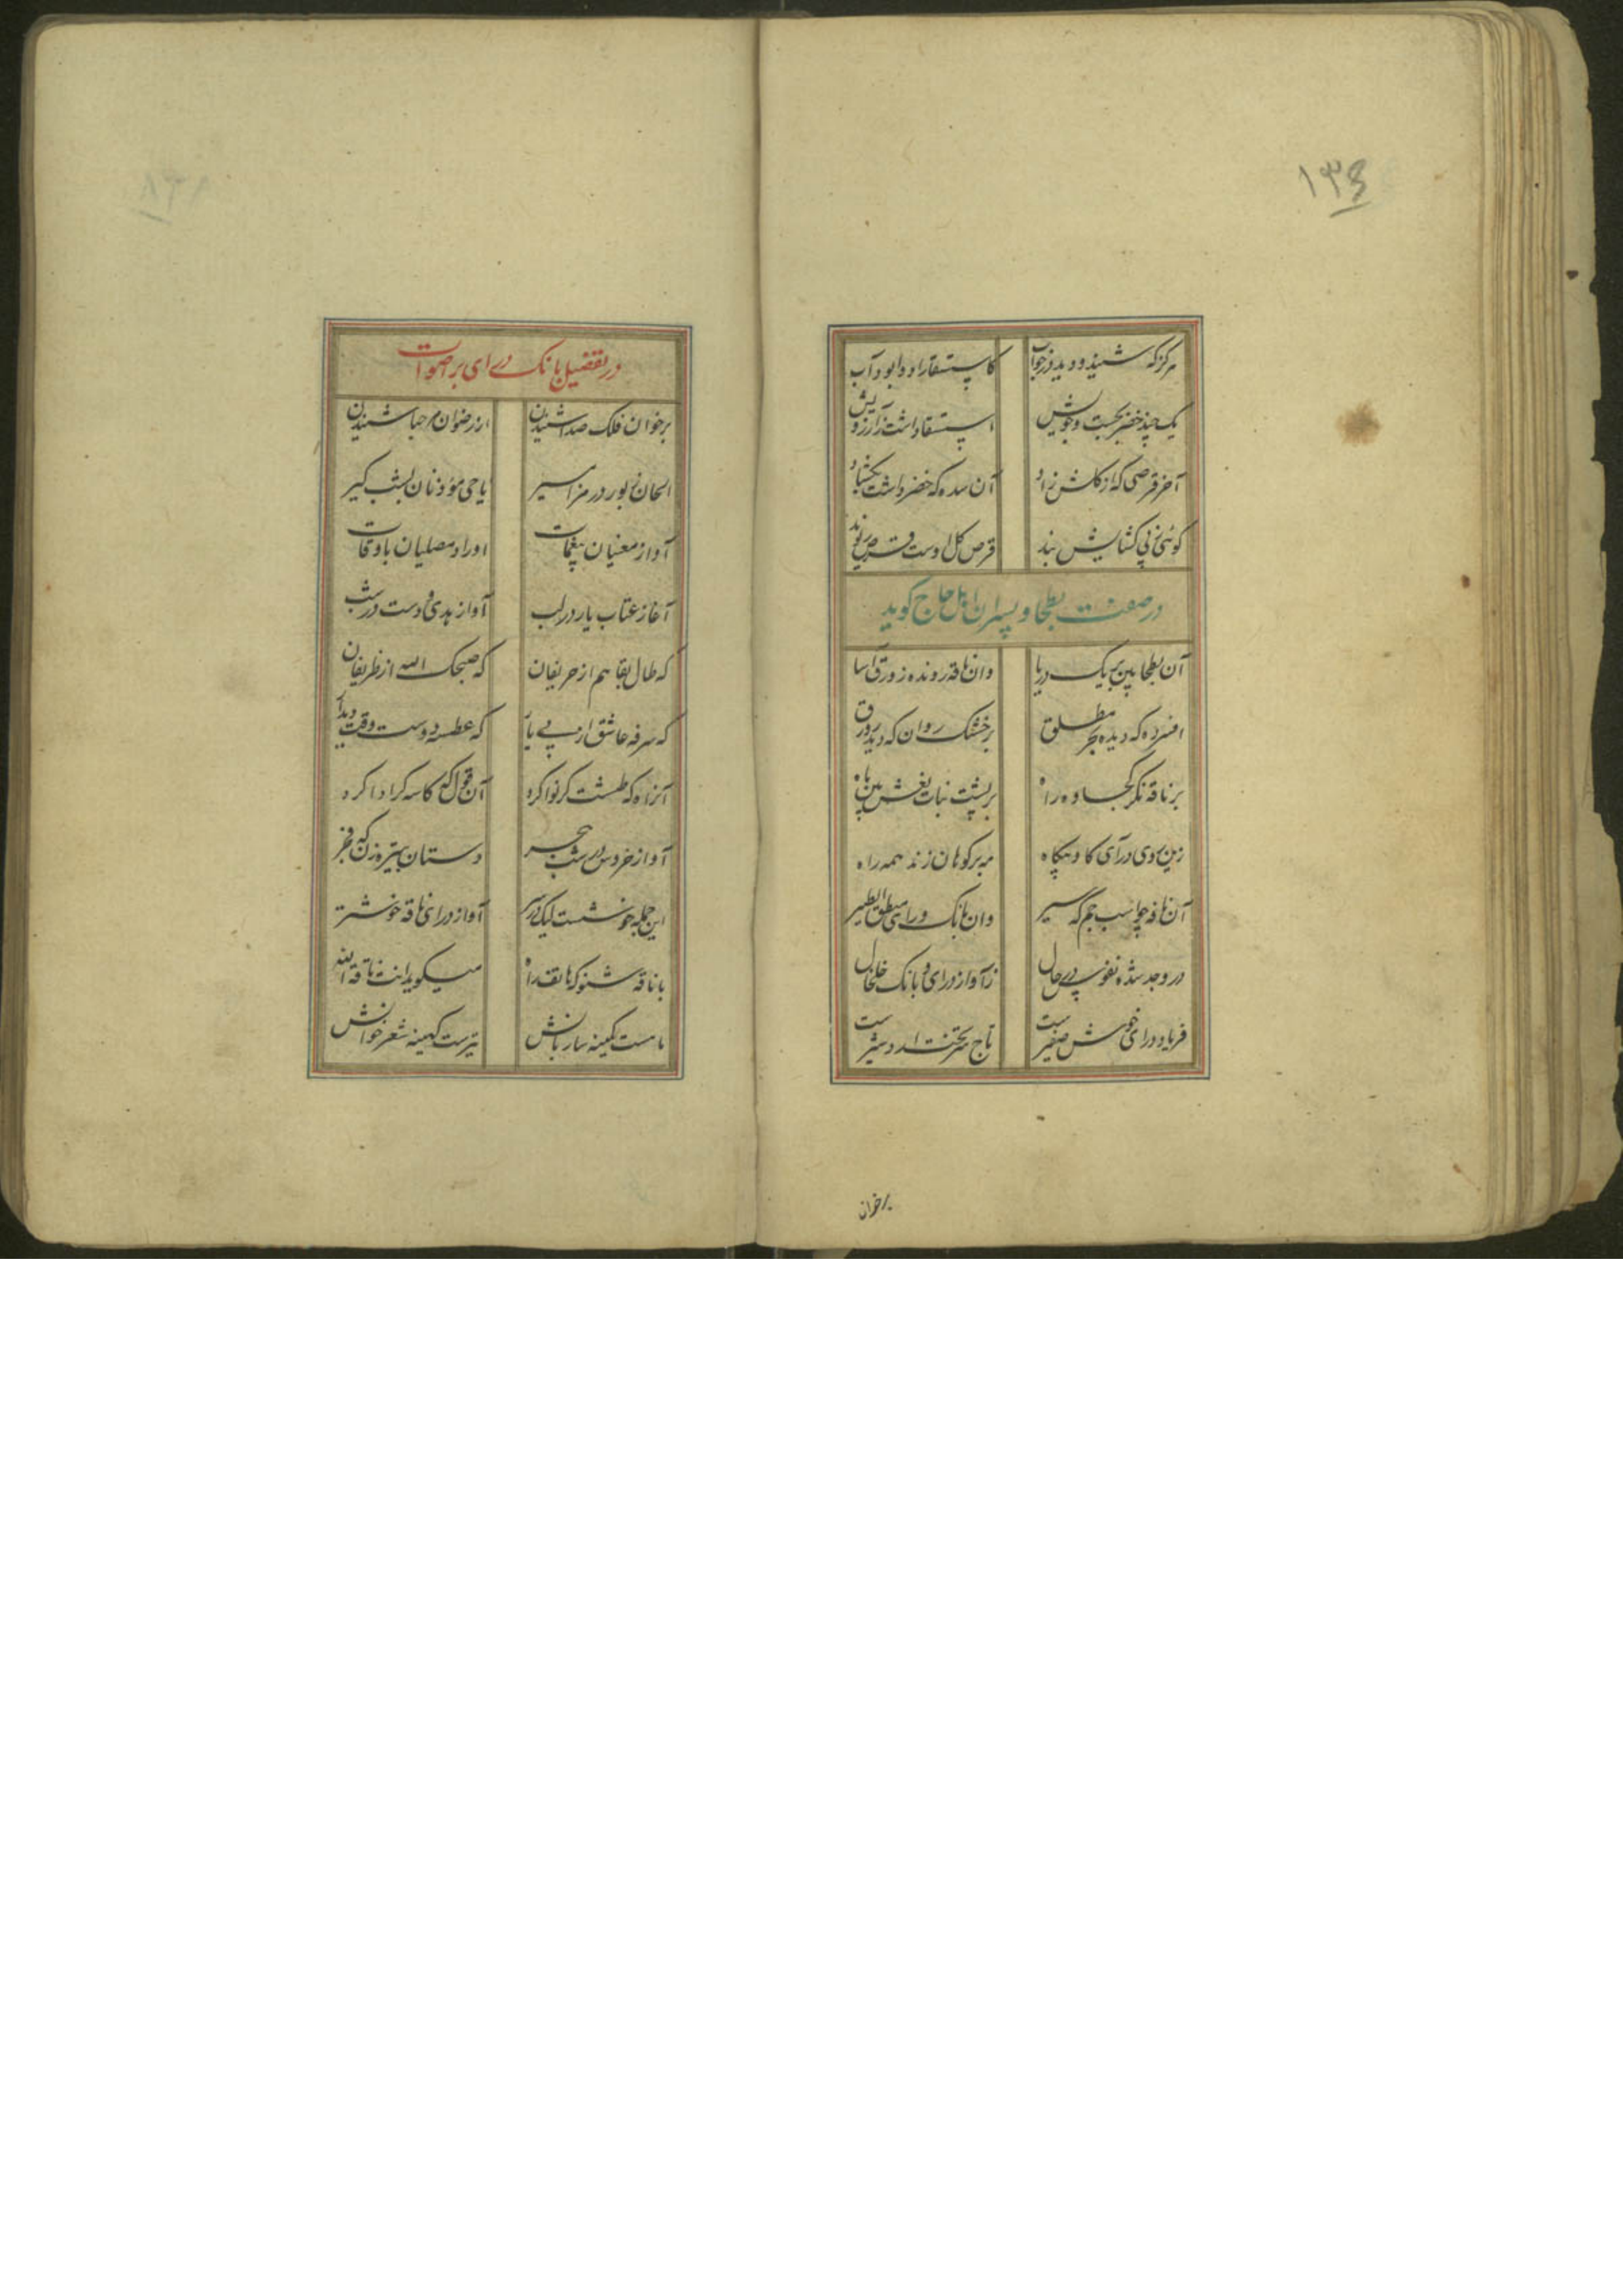 ۱۳۶
هرگز که شنید و دید در خواب
کاستسقا را دوا بود آب
یک چند خضر بجست و جویش
استسقا داشت ز آرزویش
آخر قرصی که از گلش زاد
آن سده که خضر داشت بگشاد
گوئی ز پی گشایش بند
قرص گل اوست قرص ریوند
در صفت بطحا و پسران اهل حاج گوید
آن بطحا بین بریگ دریا
وان ناقه رونده زورق آسا
افسرده که دیده بحر مطلق
بر خشک روان که دید زورق
بر ناقه نگر کجاوه را
بر پشت بنات نعش بین ماه
زین سوی درآی گاه و بیگاه
مه بر کوهان زند همه راه
آن ناقه چو اسب جم گه سیر
وان بانک درای منطق الطیر
در وجد شده نفوس در حال
ز آواز درای و بانک خلخال
فریاد درای خوش صفیرست
تاج سر تخت اردشیرست
برخوان
در تفضیل بانک درای بر اصوات
بر خوان فلک صدا شنیدن
از رضوان مرحبا شنیدن
الحان زبور در مزامیر
یا حی مؤذنان بشبگیر
آواز مغنیان بنغمات
اوراد مصلیان باوقات
آغاز عتاب یار در لب
آواز بدی دوست در شب
که طال بقا هم از حریفان
که صبحک الله از ظریفان
که سرفه عاشق از پی یار
که عطسه دوست وقت دیدار
آنراه که طشت گر نوا کرد
آن قول که کاسه گر ادا کرد
آواز خروس در شب هجر
دستان تبیره زن که فجر
این جمله خوشست لیک در سر
آواز درای ناقه خوشتر
با ناقه شنو که هاتف راه
میگوید انت ناقة الله
ما مست کمینه ساربانش
تیرست کهینه شعر خوانش